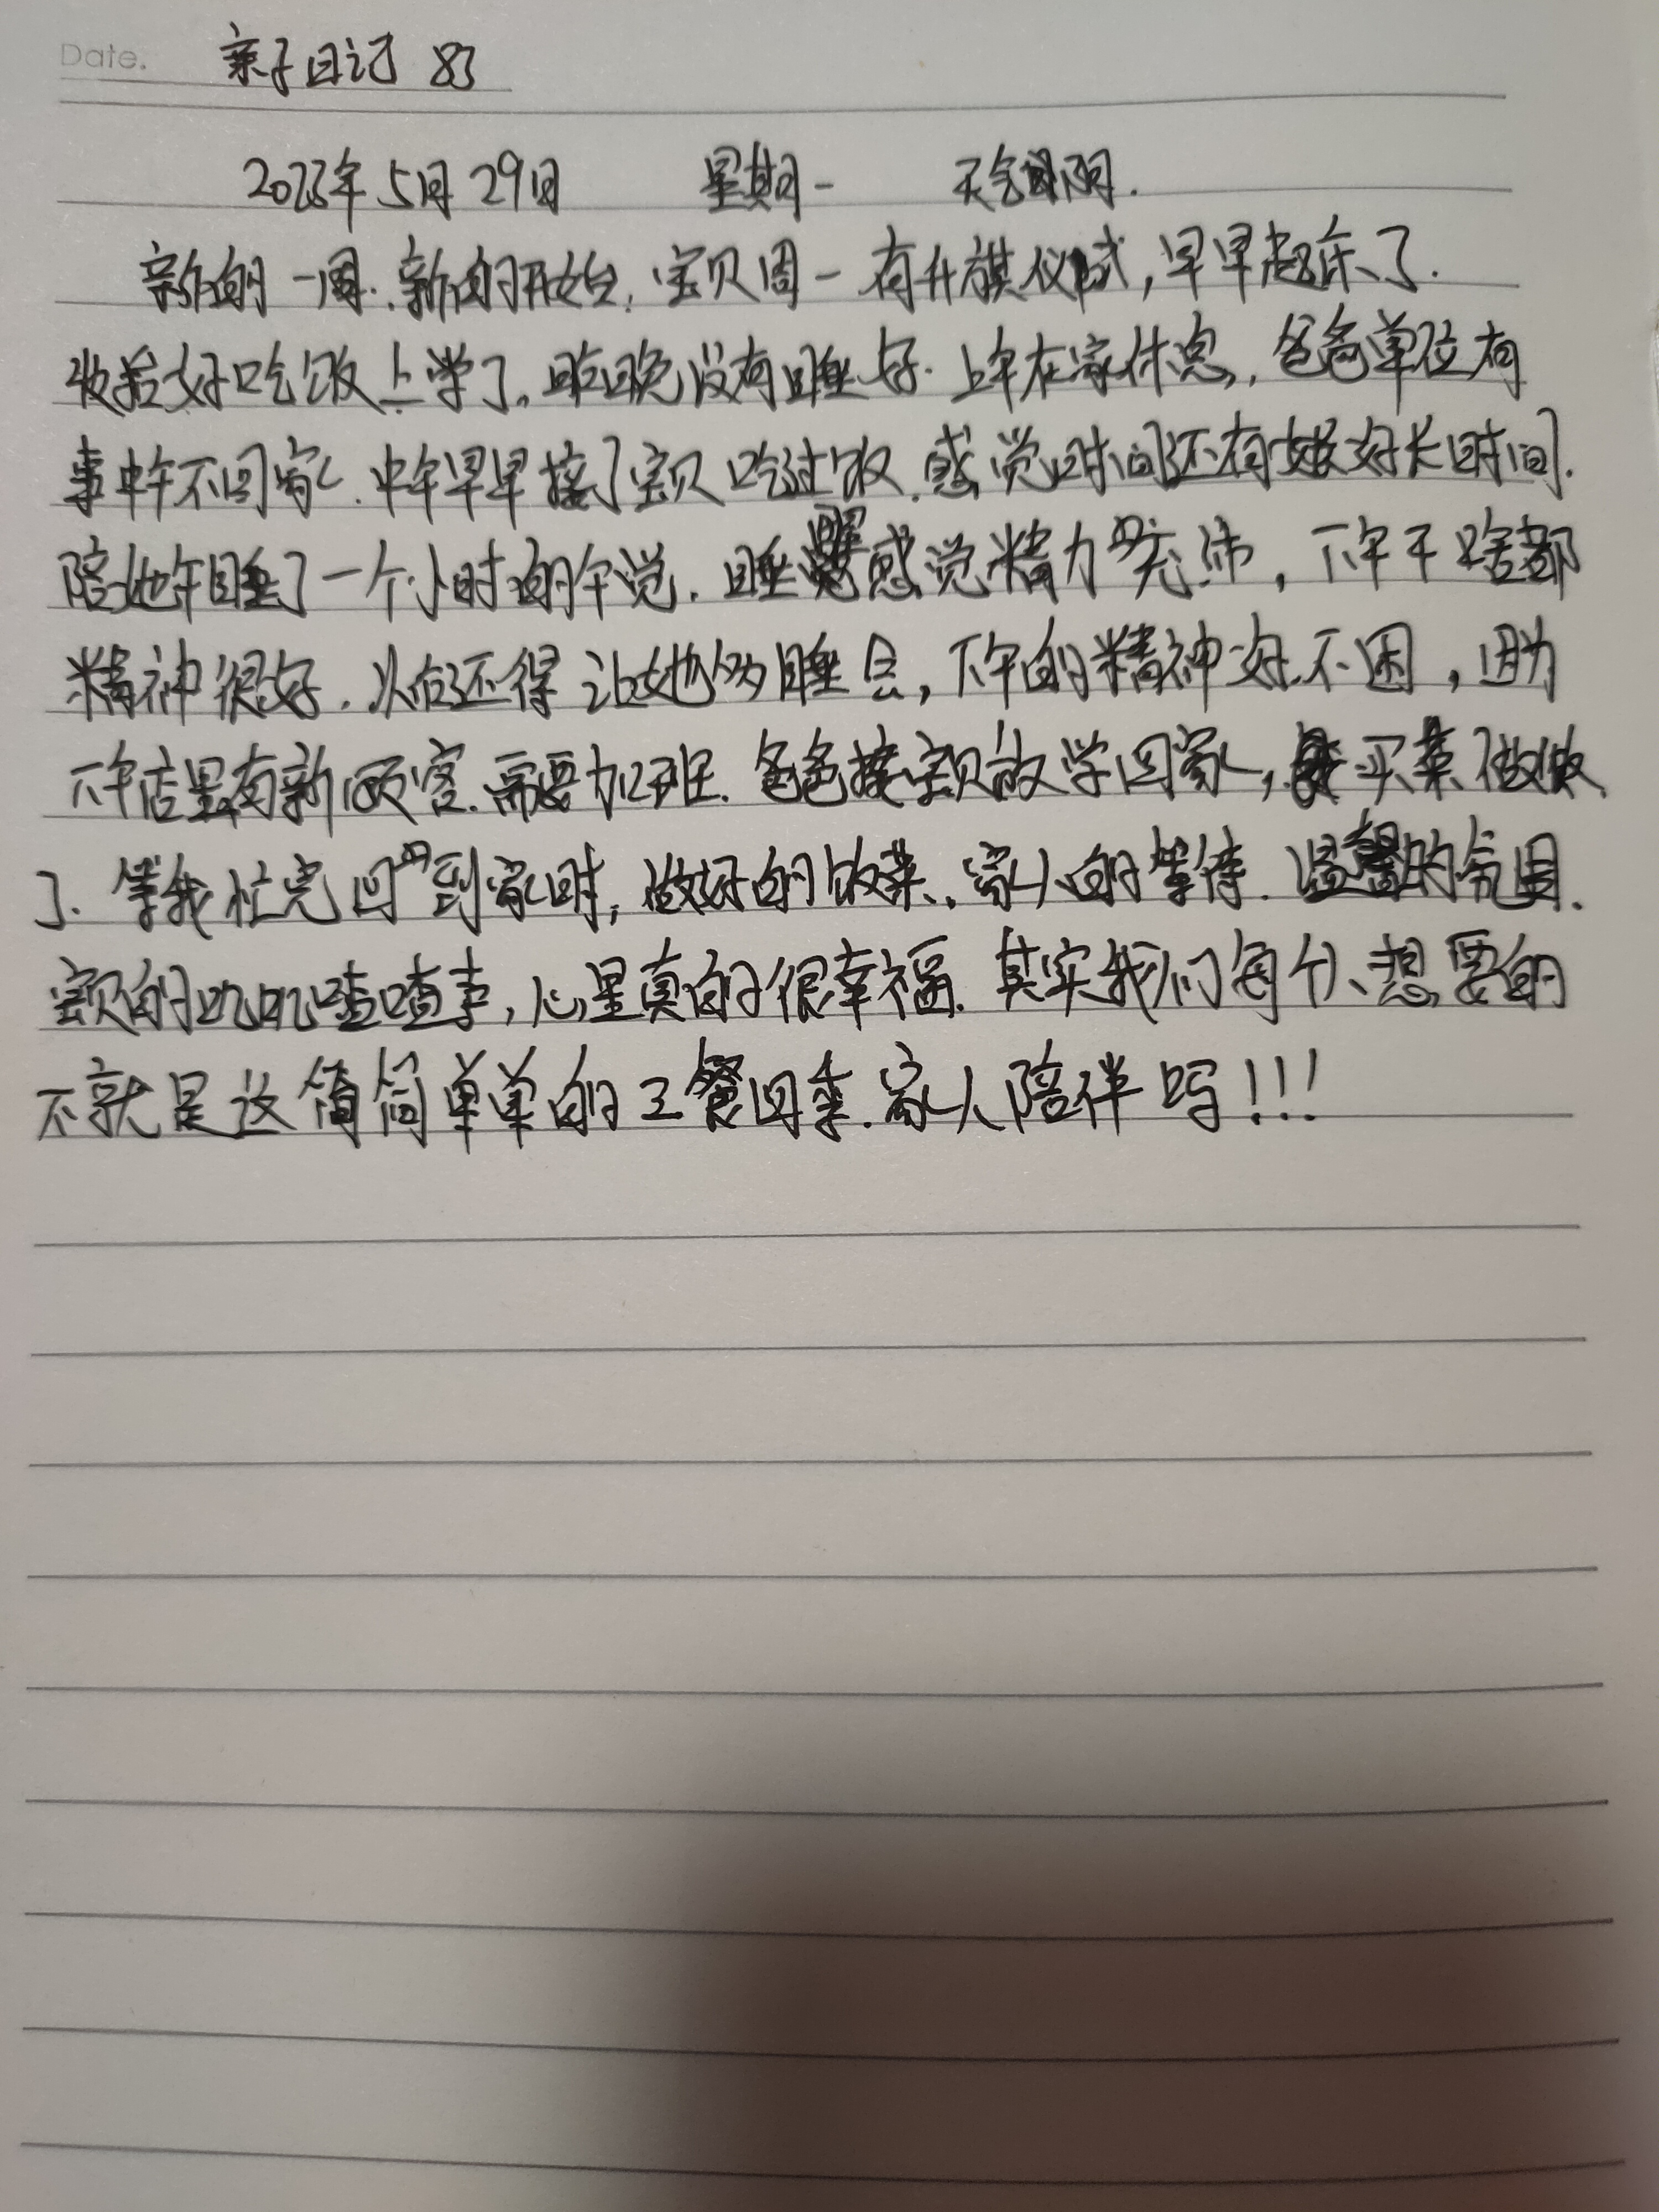 Date. 亲子日记 83
2023年5月29日 星期一 天气阴.
新的一周.新的开始.宝贝周一有升旗仪式,早早起床了.
收拾好吃饭上学了。昨晚没有睡好.上午在家休息,爸爸单位有
事中午不回家.中午早早接了宝贝吃过饭.感觉时间还有好长时间.
陪她午睡了一个小时的午觉.睡醒感觉精力充沛,下午干啥都
精神很好.以后还得让她多睡会,下午的精神好不困,因为
下午店里有新顾客.需要加班.爸爸接宝贝放学回家,买菜做饭
了.等我忙完回到家时,做好的饭菜.家人的等待.温馨的氛围.
宝贝的叽叽喳喳事,心里真的很幸福.其实我们每个人想要的
不就是这简简单单的三餐四季.家人陪伴吗!!!